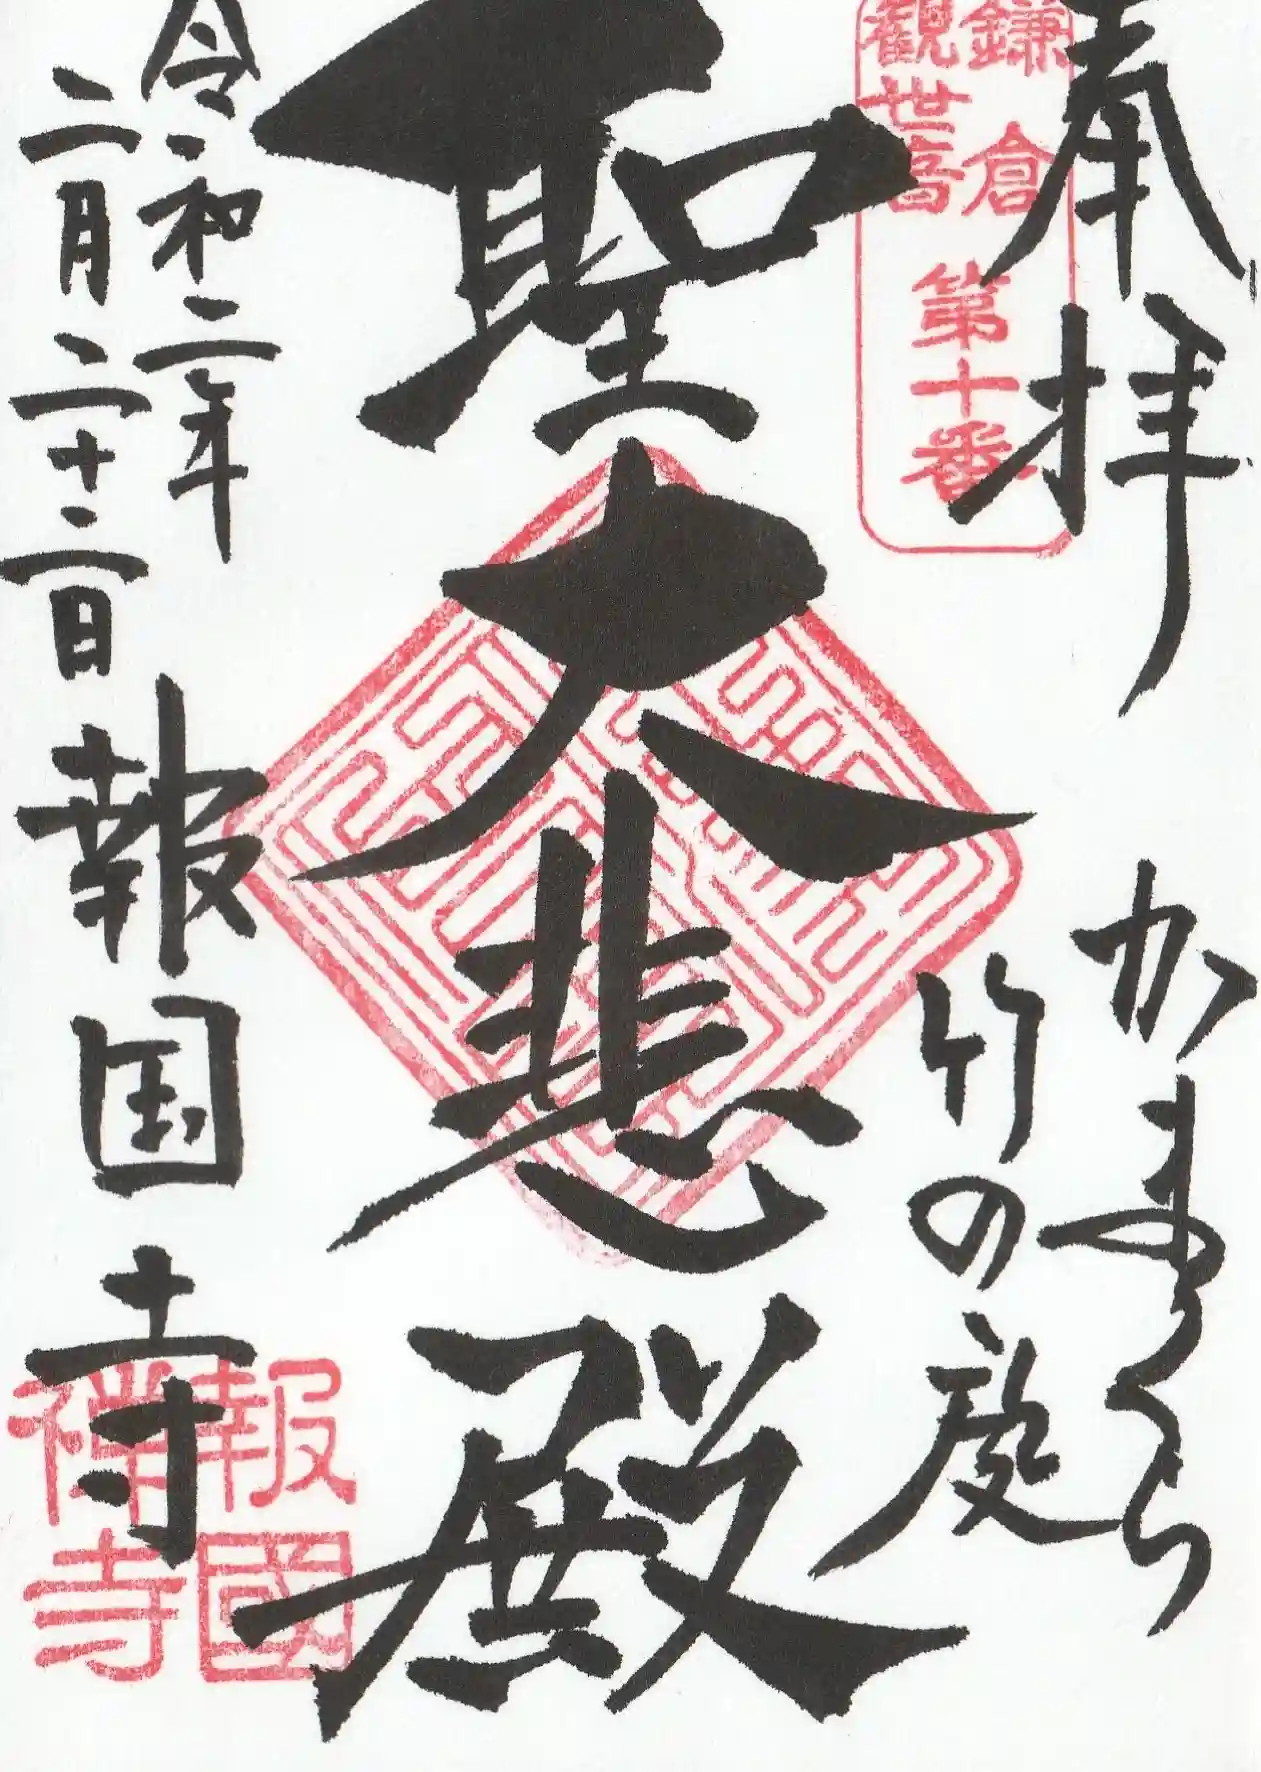 奉拝
鎌倉
觀世音
第十番
かまくら
竹の庭
聖大悲殿
令和二年
二月二十二日
報国寺
報國
禅寺